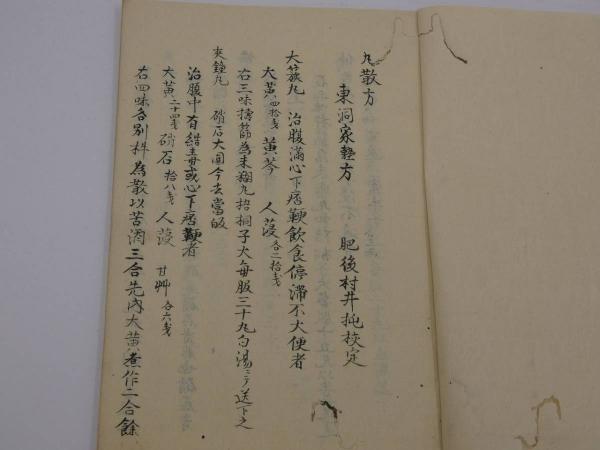 丸散方
東洞家塾方　肥後村井杶校定
大簇丸　治腹滿心下痞鞕飲食停滯不大便者
大黃四拾戔　黃芩　人葠各二拾戔
右三味擣篩為末糊丸梧桐子大每服三十丸白湯ニテ送下之
夾鐘丸　硝石大圓今去當皈
治腹中有結毒或心下痞鞕者
大黃二十四戔　硝石拾八戔　人葠　甘艸各六戔
右四味各別杵為散以苦酒三合先內大黃煮作二合餘